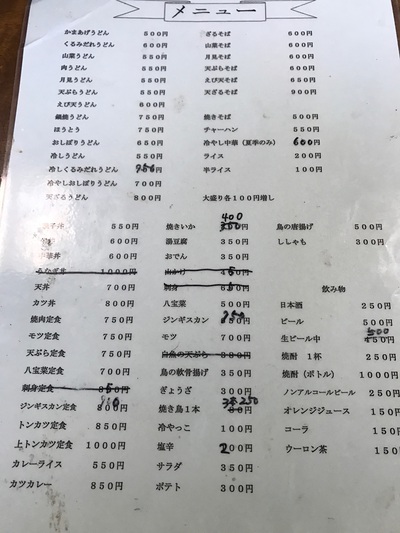 メニュー
かまあげうどん 500円
くるみだれうどん 600円
山菜うどん 550円
肉うどん 550円
月見うどん 550円
天ぷらうどん 650円
えび天うどん 800円
鍋焼うどん 750円
ほうとう 750円
おしぼりうどん 650円
冷しうどん 550円
冷しくるみだれうどん 750円
冷やしおしぼりうどん 700円
天ざるうどん 800円
ざるそば 600円
山菜そば 600円
月見そば 600円
天ぷらそば 600円
えび天そば 650円
天ざるそば 900円
焼きそば 600円
チャーハン 550円
冷やし中華(夏季のみ) 600円
ライス 200円
半ライス 100円
大盛り各100円増し
子丼 550円
600円
丼 600円
うなぎ丼 1000円
天丼 700円
カツ丼 800円
焼肉定食 750円
モツ定食 750円
天ぷら定食 750円
八宝菜定食 700円
刺身定食 850円
ジンギスカン定食 800円
トンカツ定食 850円
上トンカツ定食 1000円
カレーライス 550円
カツカレー 850円
焼きいか 400
湯豆腐 350円
おでん 350円
山かけ 450円
刺身 650円
八宝菜 500円
ジンギスカン 850円
モツ 700円
白魚の天ぷら 380円
鳥の軟骨揚げ 350円
ぎょうざ 300円
焼き鳥1本 3本250
冷やっこ 100円
塩辛 200円
サラダ 350円
ポテト 300円
鳥の唐揚げ 500円
ししゃも 300円
飲み物
日本酒 250円
ビール 500円
生ビール中 500
焼酎 1杯 250円
焼酎(ボトル) 1000円
ノンアルコールビール 250円
オレンジジュース 150円
コーラ 150円
ウーロン茶 150円